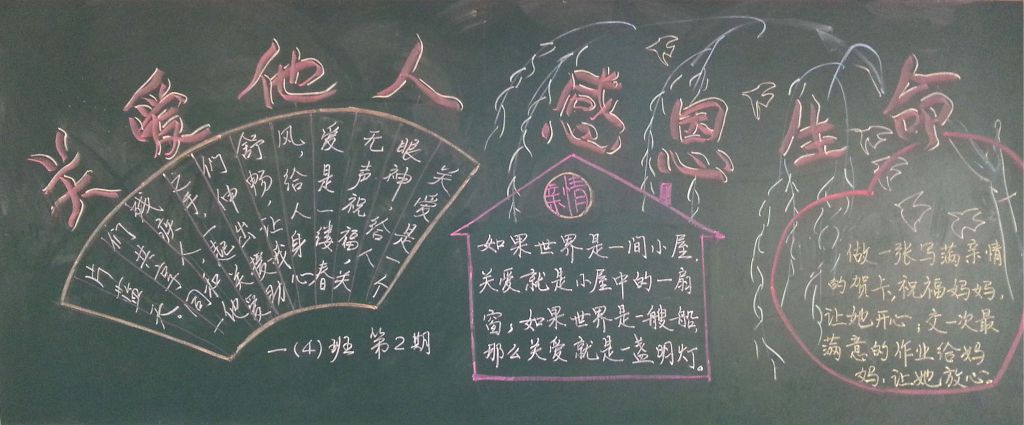 关爱他人
感恩生命
关爱是一个
眼神,给人
无声祝福,关
爱是一缕春
风,给人身心
舒畅,让我
们伸出
之手,一起关爱
们共享同一
片蓝天。
一(4)班 第2期
亲情
如果世界是一间小屋,
关爱就是小屋中的一扇
窗;如果世界是一艘船
那么关爱就是一盏明灯。
做一张写满亲情
的贺卡,祝福妈妈,
让她开心;交一次最
满意的作业给妈
妈,让她放心。